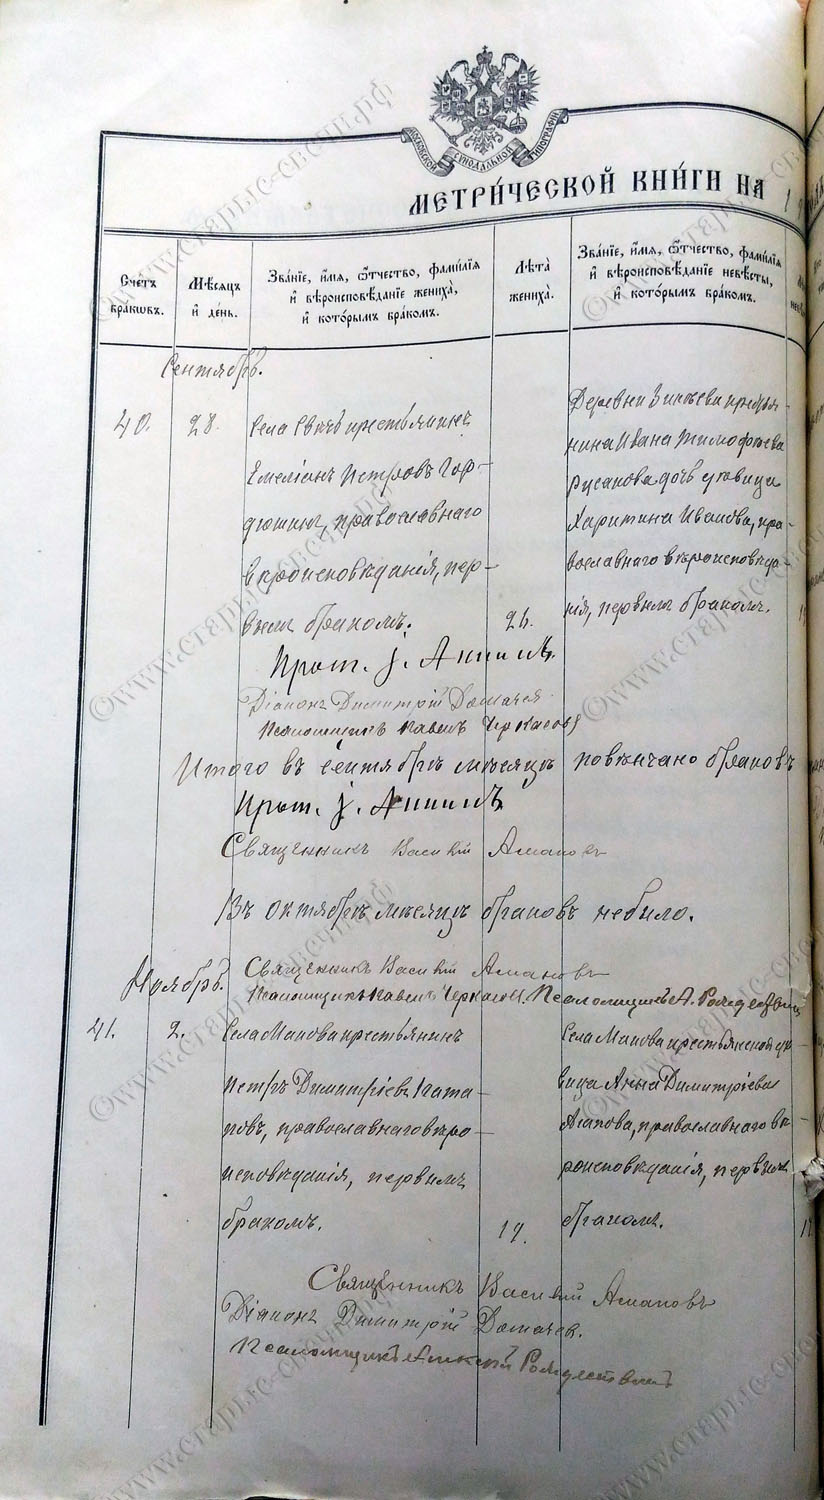 МОСКОВСКОЙ СУНОДАЛЬНОЙ ТИПОГРАФІИ
МЕТРИ́ЧЕСКОЙ КНИ́ГИ НА 1
Счетъ бра́кѡвъ.
Мѣ́сѧцъ и҆ де́нь.
Зва́нїе, и҆́мѧ, ѻ҆́тчество, фамилїѧ и҆ вѣроисповѣ́данїе жениха̀, и҆ кото́рымъ бра́комъ.
Лѣ́та жениха̀.
Зва́нїе, и҆́мѧ, ѻ҆́тчество, фамилїѧ и҆ вѣроисповѣ́данїе невѣ́сты, и҆ кото́рымъ бра́комъ.
Сентябрь.
40.
28.
Села крестьянинъ
Емеліанъ Петровъ Гор-
дюшинъ, православнаго
вѣроисповѣданія, пер-
вымъ бракомъ.
Деревни крестья-
нина Ивана Тимофѣева
Русакова дочь дѣвица
Харитина Иванова, пра-
вославнаго вѣроисповѣда-
нія, первымъ бракомъ.
Прот. І.
Діаконъ Димитрій
Псаломщикъ Павелъ Черкасовъ
Итого въ сентябрѣ мѣсяцѣ повѣнчано браковъ
Прот. І.
Священникъ Василій Агаповъ
Въ октябрѣ мѣсяцѣ браковъ небыло.
Священникъ Василій Агаповъ
Псаломщикъ Павелъ Черкасовъ. Псаломщикъ А. Рождественскій
Ноябрь.
41.
2.
Села Манова крестьянинъ
Петръ Димитріевъ Ката-
новъ, православнаго вѣро-
исповѣданія, первымъ
бракомъ.
19.
Села Манова крестьянская дѣ-
вица Анна Димитріева
Агапова, православнаго вѣ-
роисповѣданія, первымъ
бракомъ.
Священникъ Василій Агаповъ
Діаконъ Димитрій
Псаломщикъ Рождественскій
©www.старые-свечи.рф